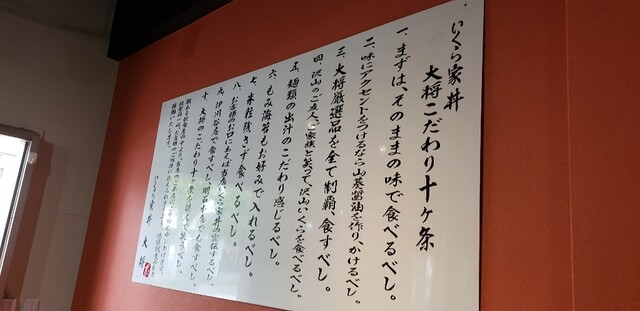 いくら家丼
大将こだわり十ヶ条
一、まずは、そのままの味で食べるべし。
二、味にアクセントをつけるなら山葵醤油を作り、かけるべし。
三、大将厳選品を全て制覇、食すべし。
四、沢山のご友人、ご家族と笑って、沢山いくらを食べるべし。
五、麺類の出汁のこだわり感じるべし。
六、もみ海苔もお好みで入れるべし。
七、米粒残さず食べるべし。
八、お客様のお口にあえば当店いくら家丼の宣伝するべし。
九、伊川谷店で食すべし、明石店でも食すべし。
十、大将のこだわり十ヶ条
いくら家丼 大将